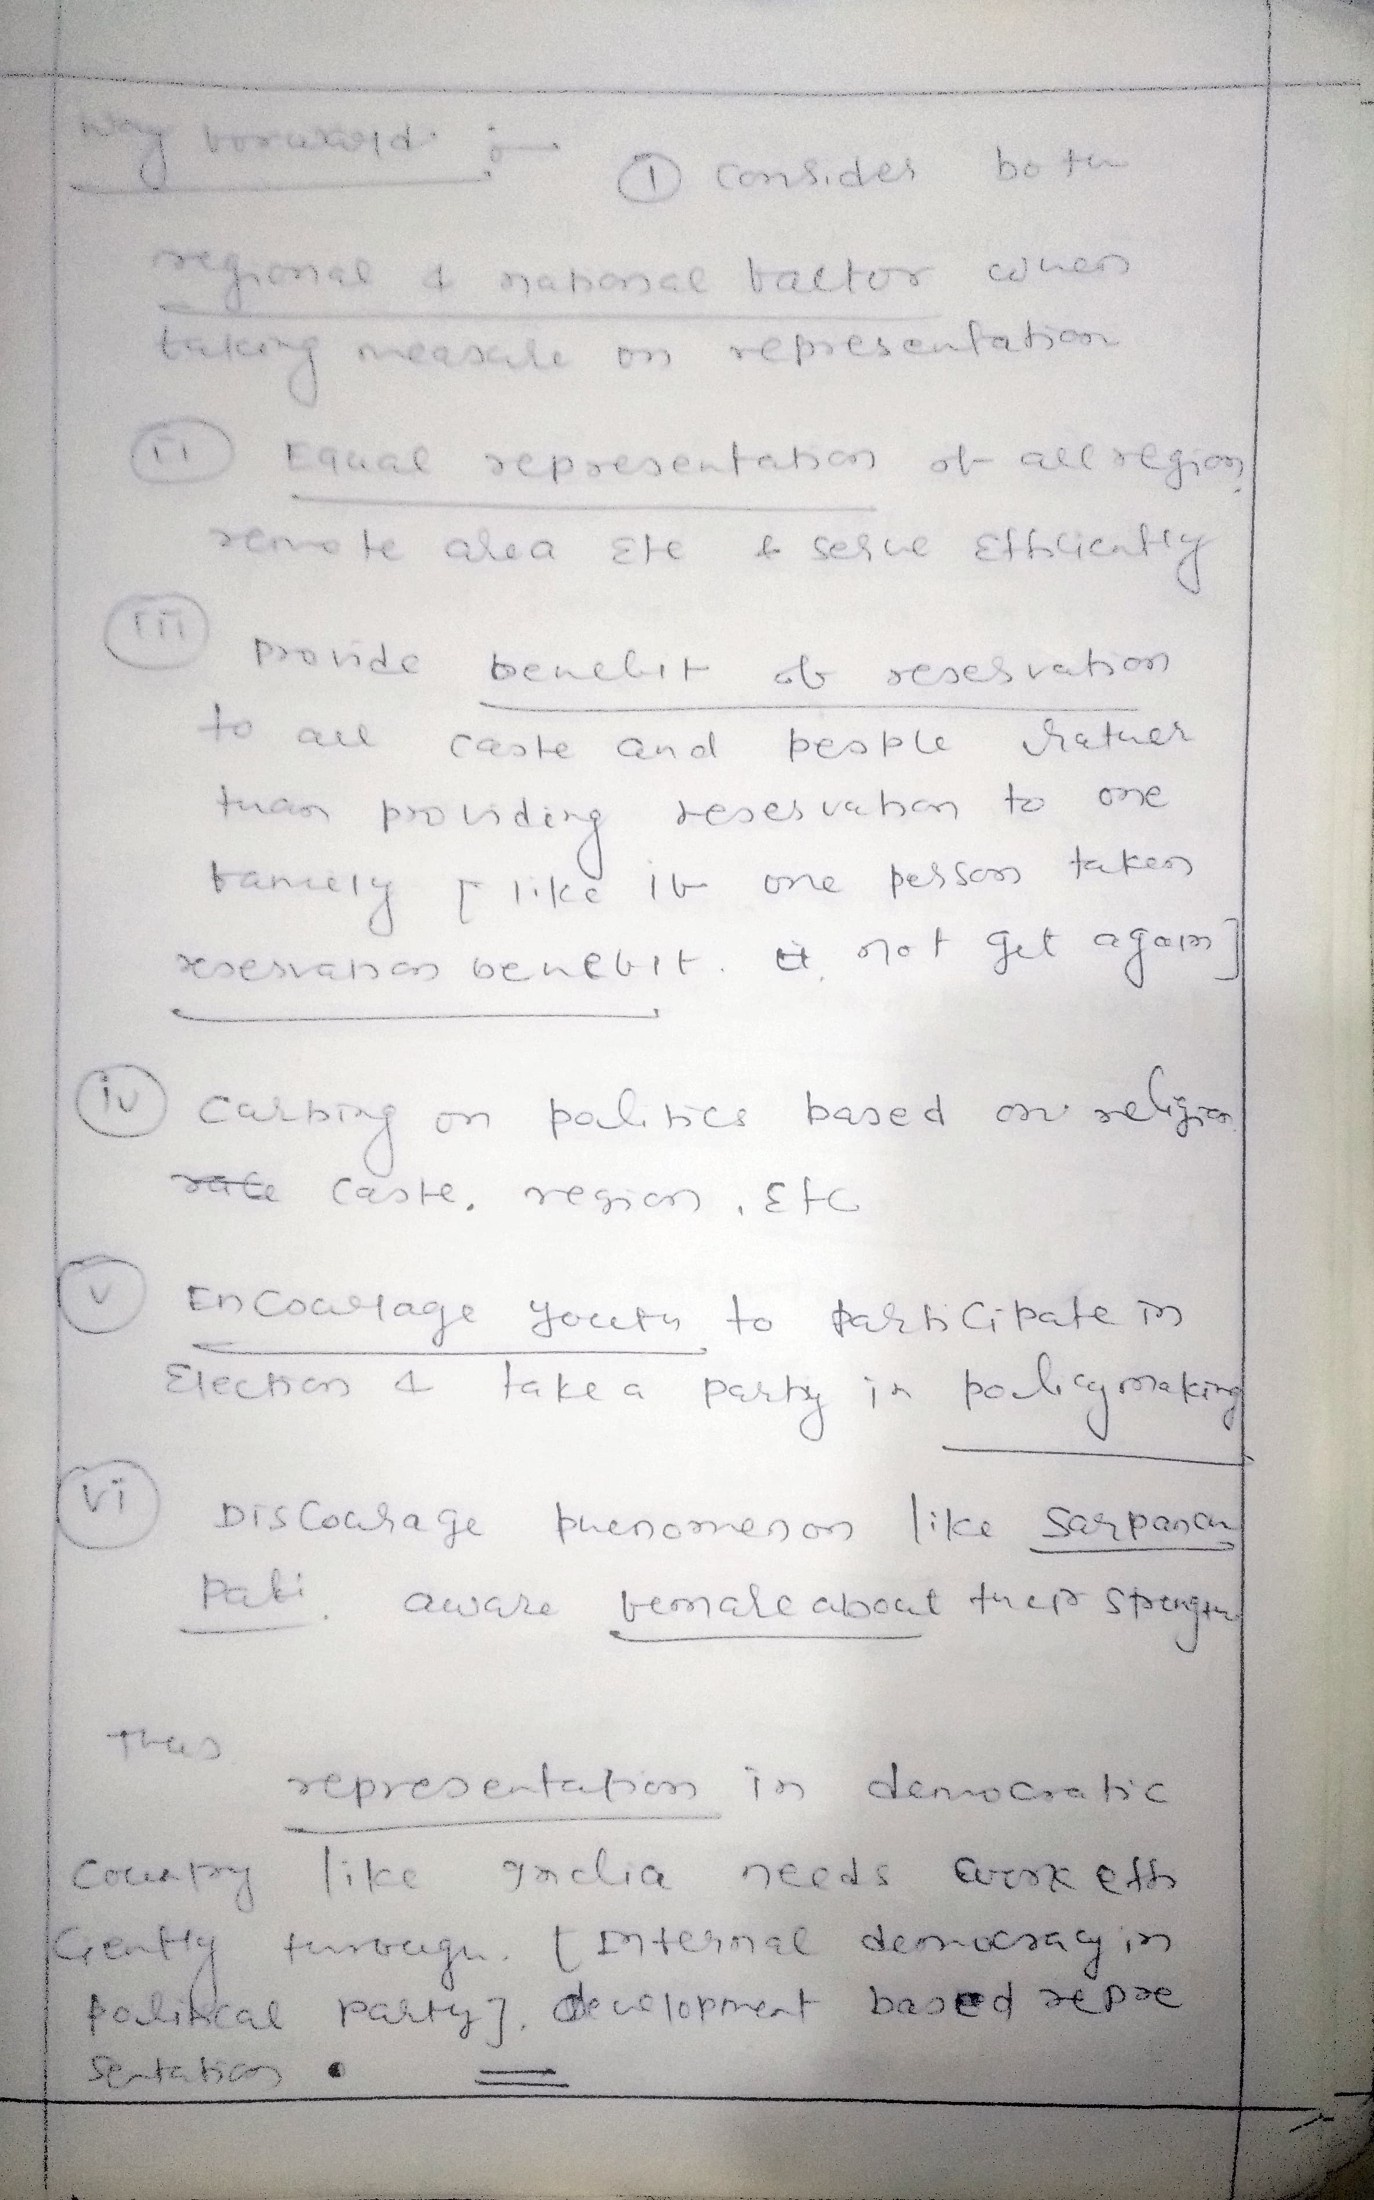 Way forward :-
① Consider both
regional & national factor when
taking measure on representation
(ii) Equal representation of all region,
remote area Etc & serve Efficiently
(iii)
Provide benefit of reservation
to all caste and people rather
than providing reservation to one
family [ like if one person taken
reservation benefit. it, not get again]
(iv) Curbing on politics based on religion
rate caste, region, Etc
(v) Encourage youth to participate in
Election & take a party in policymaking
(vi) Discourage phenomenon like Sarpanch
Pati. aware female about their strength
Thus
representation in democratic
Country like India needs work effi
ciently through. [Internal democracy in
political party], development based repre
sentation.